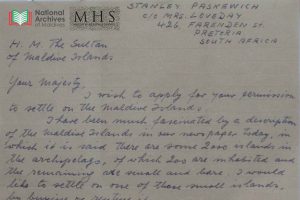 National
Archives
of Maldives
MHS
STANLEY PASKEWICH
C/O MRS. LOVEDAY
426, FARENDEN ST.
PRETORIA
SOUTH AFRICA
H. M. The Sultan
of Maldive Islands
Your Majesty,
I wish to apply for your permission
to settle on the Maldive Islands.
I have been much fascinated by a description
of the Maldive Islands in our newspaper today, in
which it is said there are some 2000 islands in
the archipelago, of which 200 are inhabited and
the remaining are small and bare. I would
like to settle on one of those small islands,
by buying or